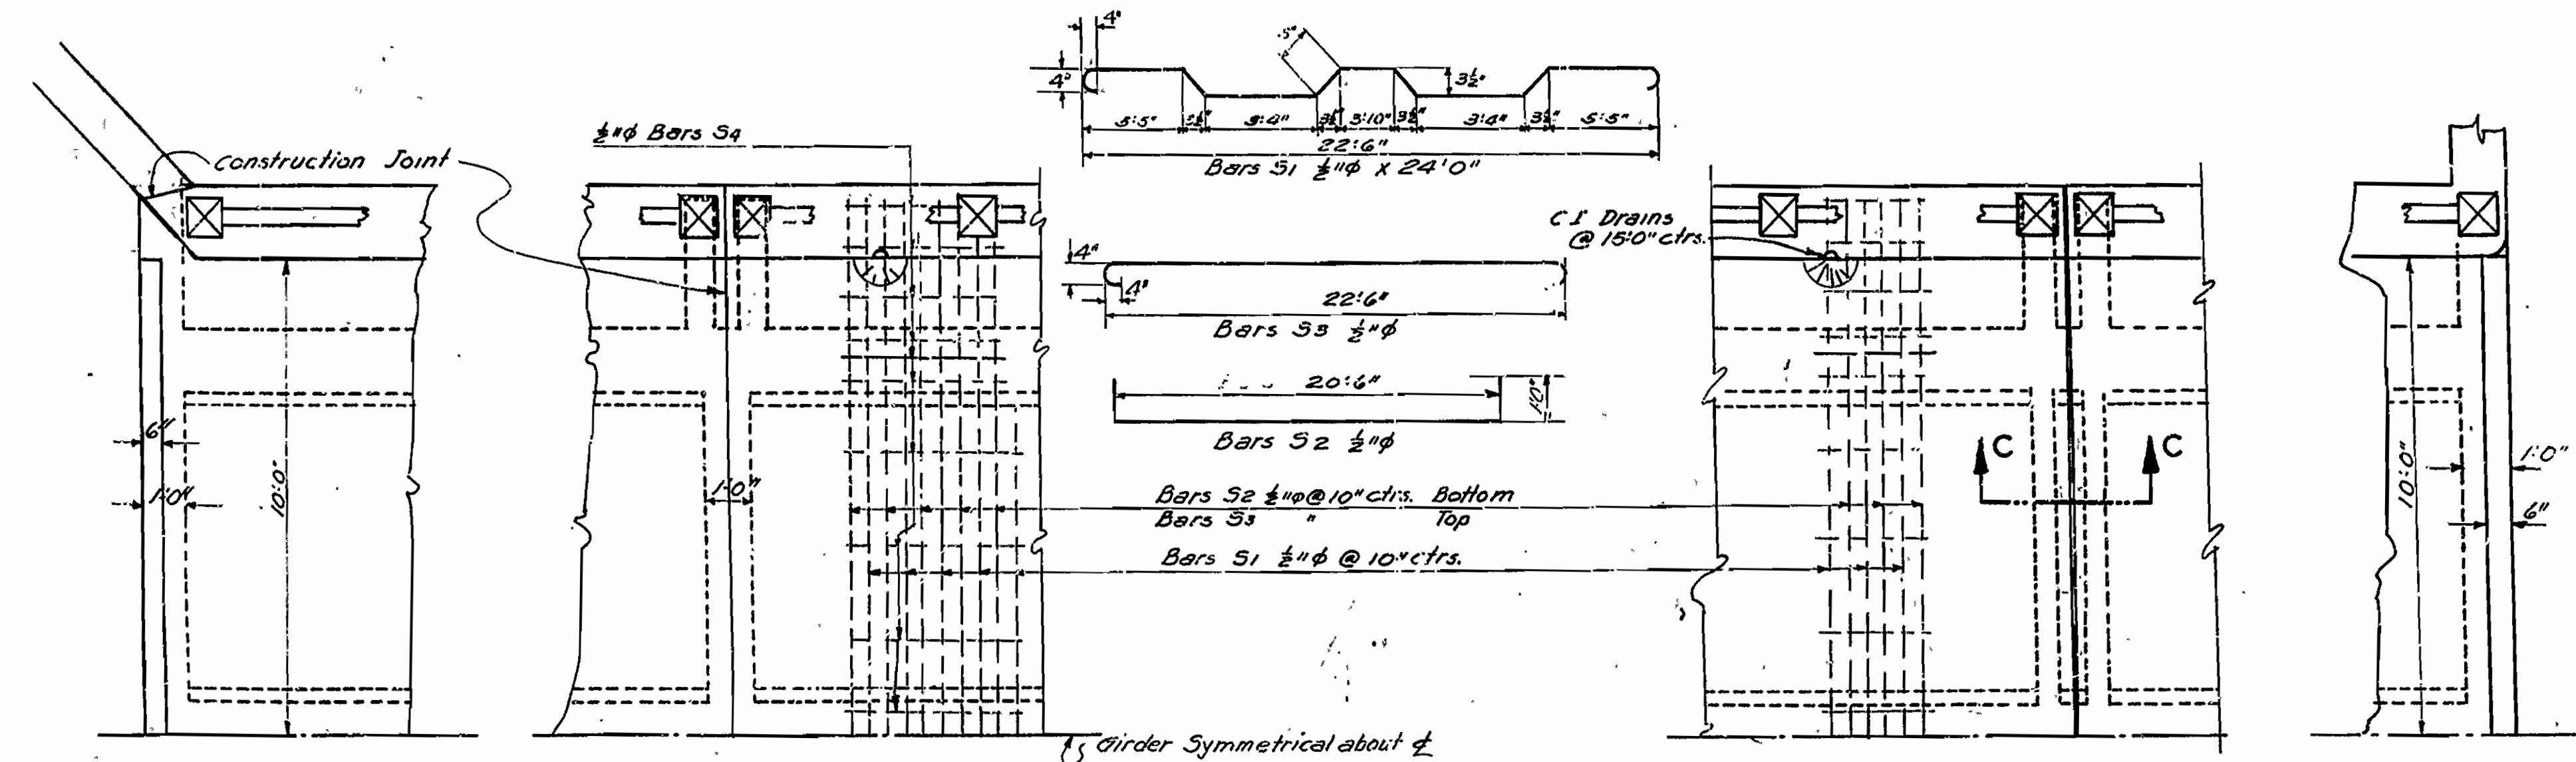 4"
.5"
4"
3½"
5'5" 3½" 3'4" 3½" 3'10" 3½" 3'4" 3½" 5'5"
22'6"
Bars S1 ½"φ x 24'0"
½"φ Bars S4
Construction Joint
C I Drains
@ 15'0" ctrs.
4"
4"
22'6"
Bars S3 ½"φ
20'6"
1'0"
Bars S2 ½"φ
6"
1'0"
10'0"
1'0"
Bars S2 ½"φ@10" ctrs. Bottom
Bars S3 " Top
Bars S1 ½"φ @ 10" ctrs.
C C
10'0"
1'0"
6"
Girder Symmetrical about ℄